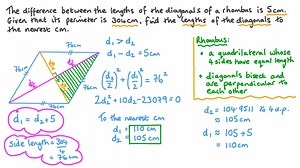 The difference between the lengths of the diagonals of a rhombus is 5cm.
Given that its perimeter is 304cm, find the lengths of the diagonals to
the nearest cm.
76cm
76cm
76cm
d₁ > d₂
d₁ - d₂ = 5cm
(d₁/2)² + (d₂/2)² = 76²
2d₂² + 10d₂ - 23079 = 0
To the nearest cm
d₁ = 110cm
d₂ = 105cm
d₁ = d₂ + 5
Side length = 304/4
= 76cm
Rhombus:
• a quadrilateral whose
4 sides have equal length
• diagonals bisect and
are perpendicular to
each other
d₂ = 104.9511 to 4 d.p.
≈ 105cm
d₁ ≈ 105 + 5
≈ 110cm